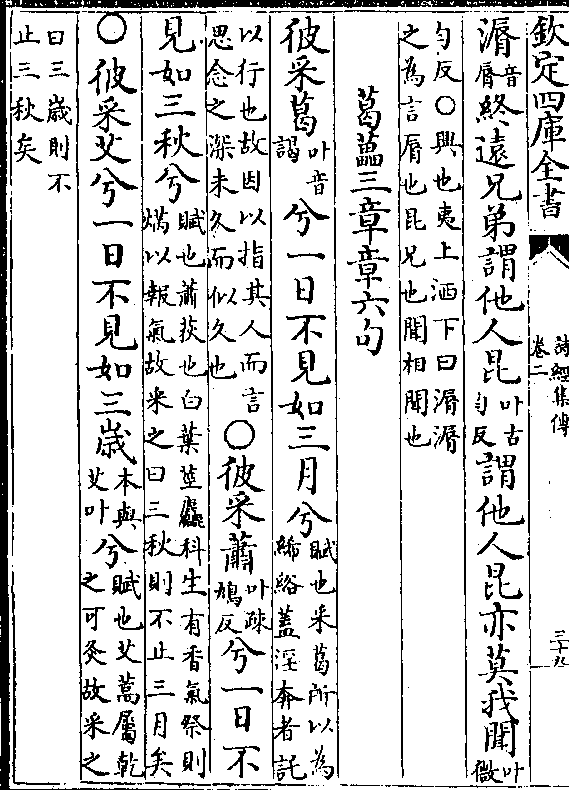 欽定四庫全書
詩經集傳
卷二
三十九
漘音脣終遠兄弟謂他人昆叶古勻反謂他人昆亦莫我聞叶微
勻反○興也夷上洒下曰漘漘
之為言脣也昆兄也聞相聞也
葛藟三章章六句
彼采葛叶音謁兮一日不見如三月兮賦也采葛所以為絺綌蓋淫奔者託
以行也故因以指其人而言思念之深未久而似久也○彼采蕭叶疎鳩反兮一日不
見如三秋兮賦也蕭荻也白葉莖麤科生有香氣祭則焫以報氣故采之曰三秋則不止三月矣
○彼采艾兮一日不見如三歲本與艾叶兮賦也艾蒿屬乾之可灸故采之
曰三歲則不
止三秋矣